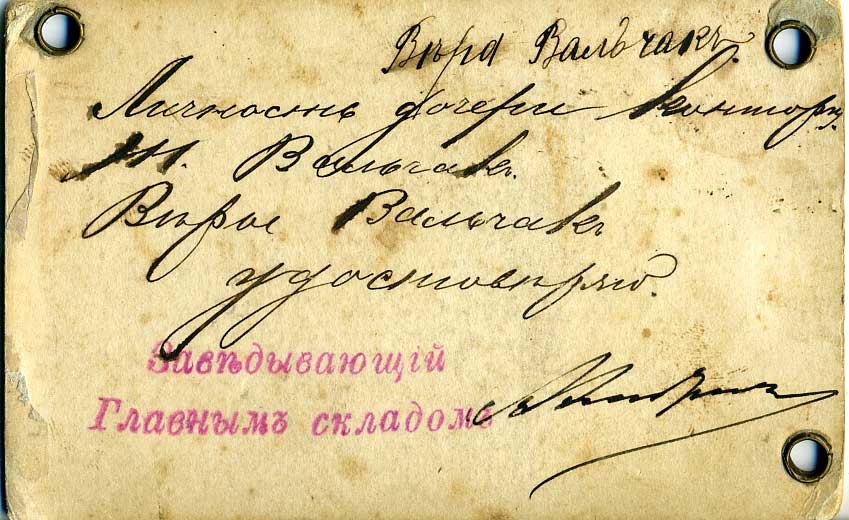 Вѣра Вальчакъ
Личность дочери контор.
М. Вальчакъ
Вѣры Вальчакъ
удостовѣряю.
Завѣдывающій
Главнымъ складомъ